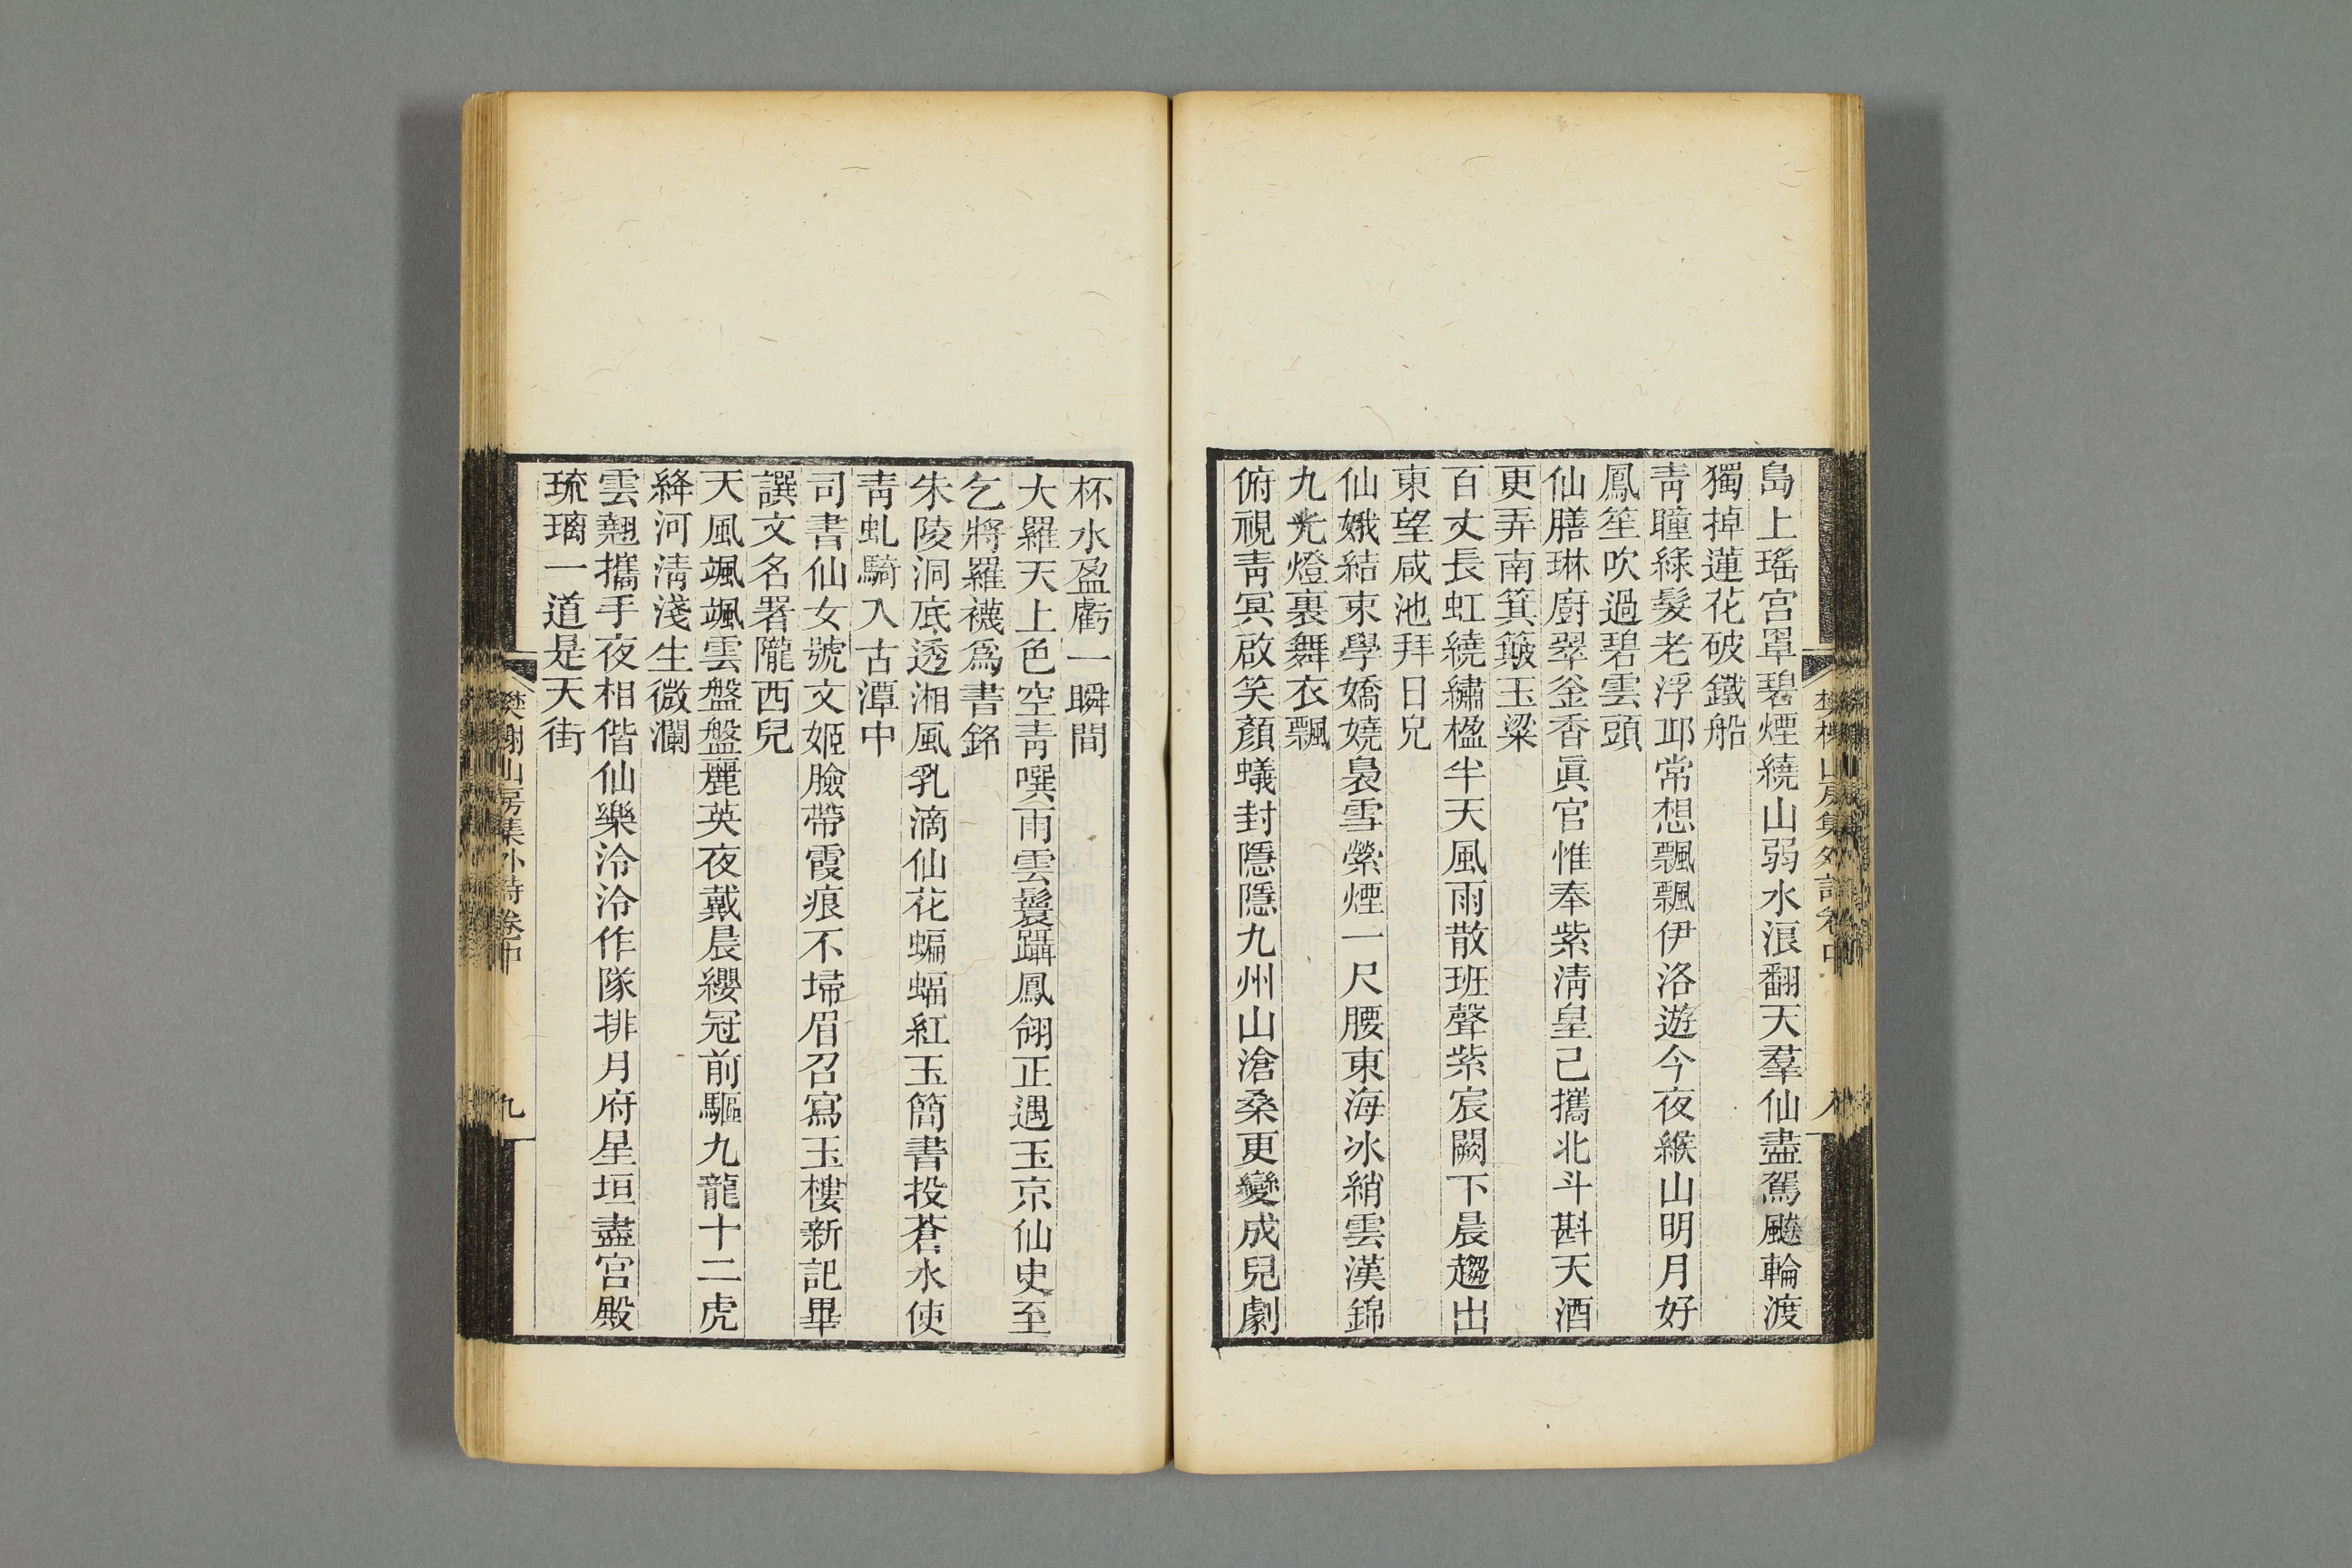 島上瑤宮罩碧煙繞山弱水浪翻天羣仙盡駕飈輪渡
獨掉蓮花破鐵船
靑瞳緑髮老浮邱常想飄飄伊洛遊今夜緱山明月好
鳳笙吹過碧雲頭
仙膳琳廚翠釜香眞官惟奉紫淸皇己攜北斗斟天酒
更弄南箕簸玉粱
百丈長虹繞繡楹半天風雨散班聲紫宸闕下晨趨出
東望咸池拜日兄
仙娥結束學嬌嬈裊雪縈煙一尺腰東海冰綃雲漢錦
九光燈裏舞衣飄
俯視靑冥啟笑顏蟻封隱隱九州山滄桑更變成兒劇
樊榭山房集外詩卷中
八
杯水盈虧一瞬間
大羅天上色空靑噀雨雲鬟躡鳳翎正遇玉京仙史至
乞將羅襪爲書銘
朱陵洞底透湘風乳滴仙花蝙蝠紅玉簡書投蒼水使
靑虬騎入古潭中
司書仙女號文姬臉帶霞痕不埽眉召寫玉樓新記畢
譔文名署隴西兒
天風颯颯雲盤盤麗英夜戴晨纓冠前驅九龍十二虎
絳河淸淺生微瀾
雲翹攜手夜相偕仙樂泠泠作隊排月府星垣盡宮殿
琉璃一道是天街
樊榭山房集外詩卷中
九